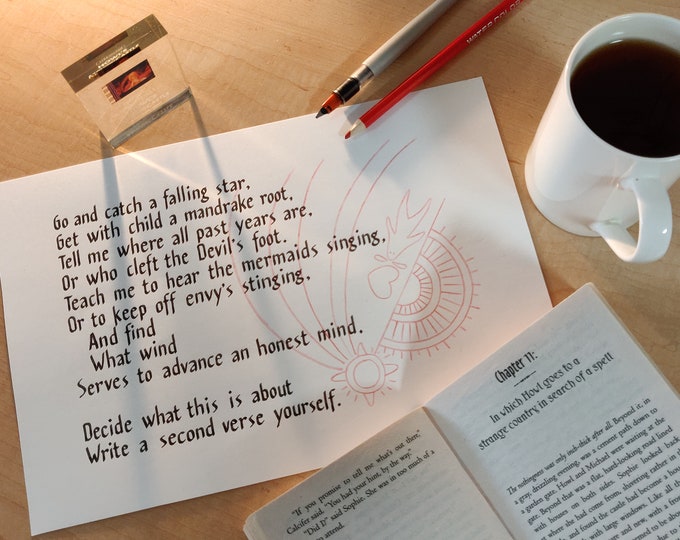 WATER COLOR
Go and catch a falling star,
Get with child a mandrake root,
Tell me where all past years are,
Or who cleft the Devil's foot.
Teach me to hear the mermaids singing,
Or to keep off envy's stinging,
And find
What wind
Serves to advance an honest mind.
Decide what this is about
Write a second verse yourself.
"If you promise to tell me what's out there,"
Calcifer said. "You had your hint, by the way."
"Did I?" said Sophie. She was in too much of a
attend.
Chapter 11:
In which Howl goes to a
strange country in search of a spell
The nothingness was only inch-thick after all. Beyond it, in
a gray, drizzling evening, was a cement path down to
a garden gate. Howl and Michael were waiting at the
gate. Beyond that was a flat, hard-looking road lined
with houses on both sides. Sophie looked back
at where she had come from, shivering rather
and found the castle had become a
with large windows. Like all
and new, with a
seemed to be